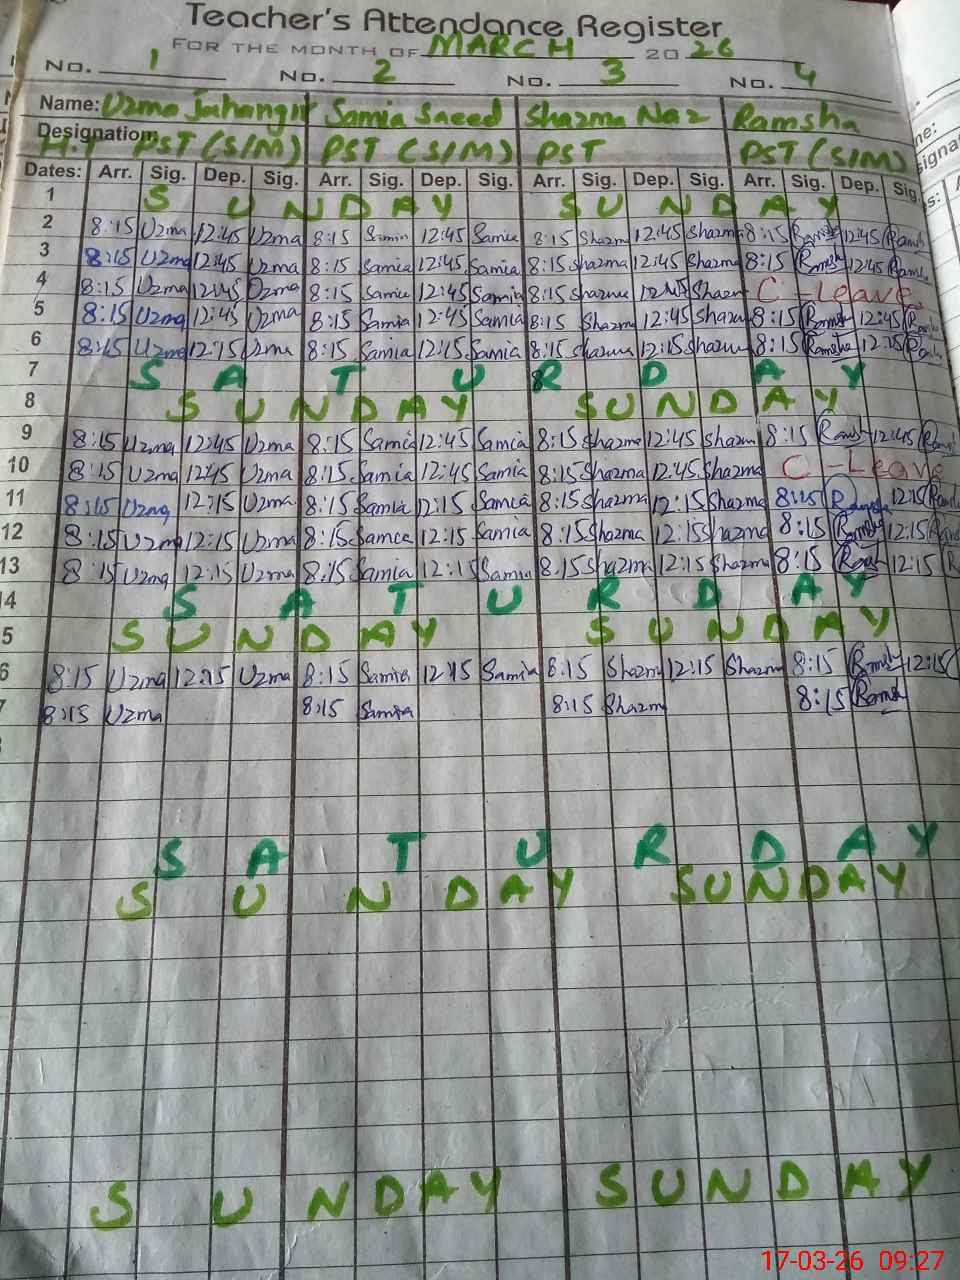 Teacher's Attendance Register
FOR THE MONTH OF MARCH 2026
No. 1 No. 2 No. 3 No. 4
Name: Uzma Jahangir Samia Saeed Shazma Naz Ramsha
Designation: H.T PST (S/M) PST (S/M) PST PST (S/M)
Dates: Arr. Sig. Dep. Sig. Arr. Sig. Dep. Sig. Arr. Sig. Dep. Sig. Arr. Sig. Dep. Sig.
1 SUNDAY SUNDAY
2 8:15 Uzma 12:45 Uzma 8:15 Samia 12:45 Samia 8:15 Shazma 12:45 Shazma 8:15 Ramsha 12:45 Ramsha
3 8:15 Uzma 12:45 Uzma 8:15 Samia 12:45 Samia 8:15 Shazma 12:45 Shazma 8:15 Ramsha 12:45 Ramsha
4 8:15 Uzma 12:45 Uzma 8:15 Samia 12:45 Samia 8:15 Shazma 12:45 Shazma C-Leave
5 8:15 Uzma 12:45 Uzma 8:15 Samia 12:45 Samia 8:15 Shazma 12:45 Shazma 8:15 Ramsha 12:45
6 8:15 Uzma 12:15 Uzma 8:15 Samia 12:15 Samia 8:15 Shazma 12:15 Shazma 8:15 Ramsha 12:15
7 SATURDAY
8 SUNDAY SUNDAY
9 8:15 Uzma 12:45 Uzma 8:15 Samia 12:45 Samia 8:15 Shazma 12:45 Shazma 8:15 Ramsha 12:45
10 8:15 Uzma 12:45 Uzma 8:15 Samia 12:45 Samia 8:15 Shazma 12:45 Shazma C-Leave
11 8:15 Uzma 12:15 Uzma 8:15 Samia 12:15 Samia 8:15 Shazma 12:15 Shazma 8:15 Ramsha 12:15
12 8:15 Uzma 12:15 Uzma 8:15 Samia 12:15 Samia 8:15 Shazma 12:15 Shazma 8:15 Ramsha 12:15
13 8:15 Uzma 12:15 Uzma 8:15 Samia 12:15 Samia 8:15 Shazma 12:15 Shazma 8:15 12:15
14 SATURDAY
5 SUNDAY SUNDAY
6 8:15 Uzma 12:15 Uzma 8:15 Samia 12:15 Samia 8:15 Shazma 12:15 Shazma 8:15 Ramsha 12:15
7 8:15 Uzma 8:15 Samia 8:15 Shazma 8:15 Ramsha
SATURDAY
SUNDAY SUNDAY
SUNDAY SUNDAY
17-03-26 09:27